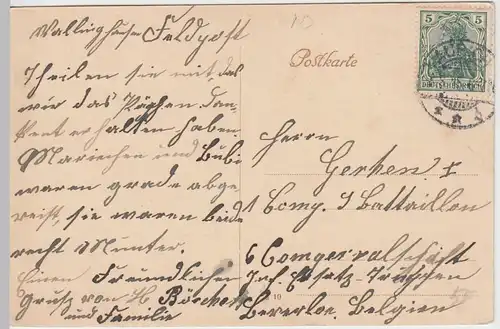 Wallinghausen Feldpost
Theilen sie mit das
wir das Päckchen dan-
kent erhalten haben
Mariechen und Bubi
waren grade abge
reist, sie waren beide
recht Munter.
Einen Freundlichen
Grusz von H Börchers
und Familie
Postkarte
5 5
DEUTSCHES REICH
Herrn
Gerken I
1 Comp. I Battaillon
6
Inf. Ersatz-Truppen
Beverloe. Belgien
10